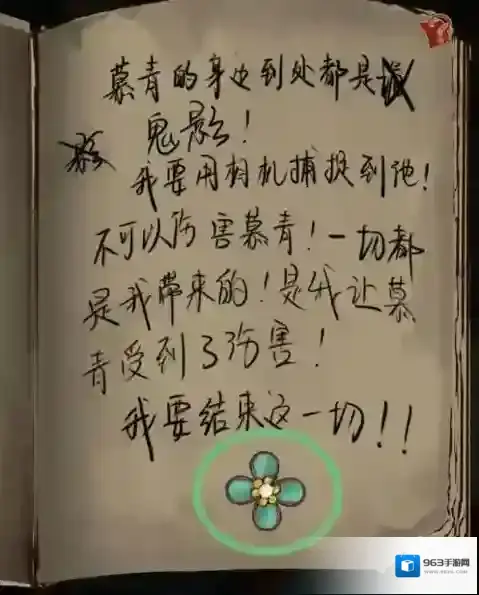 慕青的身边到处都是
鬼影！
我要用相机捕捉到他！
不可以伤害慕青！一切都
是我带来的！是我让慕
青受到了伤害！
我要结束这一切！！
963手游网